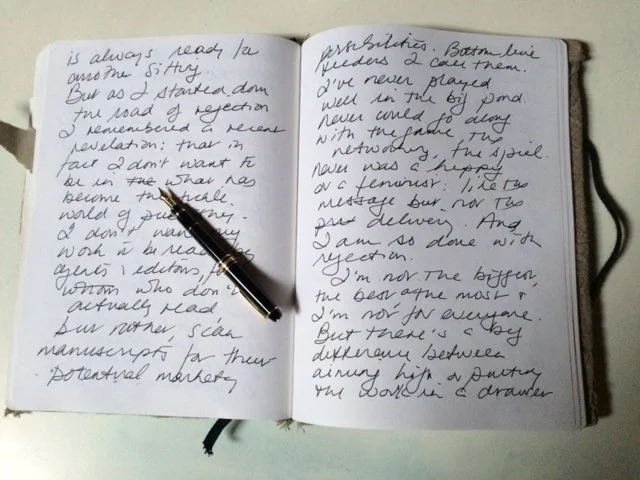 is always ready for
another sitting.
But as I started down
the road of rejection
I remembered a recent
revelation: that in
fact I don't want to
be in the what has
become the
world of
I don't want my
work to be read by
agents & editors,
whom who don't
actually read
but rather, scan
manuscripts for their
potential marketing
possibilities. Bottom line
feeders I call them.
I've never played
well in the big pond.
never cared to along
with the game, the
networking, the spiel.
never was a hippy
or a feminist: like the
message but not the
delivery. And
I am so done with
rejection.
I'm not the biggest,
the best or the most &
I'm not for everyone.
But there's a big
difference between
aiming high or putting
the work in a drawer